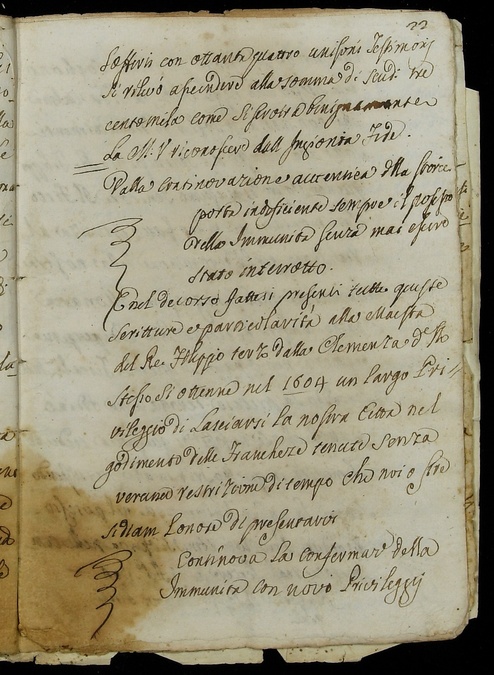 33
sofferti con ottanta quattro unisoni Testimonj
si rilevò ascendere alla somma di Scudi tre
cento mila come si servirà benignamente
La M. V. riconoscere dall' ingionta Fede.
Dalla continovazione autentica della
porta indeficiente sempre il possesso
della Immunità senza mai essere
stato interrotto.
E nel decorso fattesi presenti tutte queste
scritture e particolarità alla Maestà
del Re Filippo terzo dalla Clemenza del
stesso si ottenne nel 1604 un largo Pri
vileggio di Lasciarsi la nostra Città nel
godimento delle Franchezze tenute senza
verune restrizioni di tempo che noi
si diam l'onore di presentarvi
Continova la confermaz.e della
Immunità con novo Privileggij